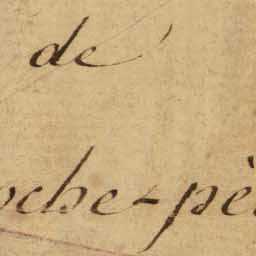 de
oche-pè